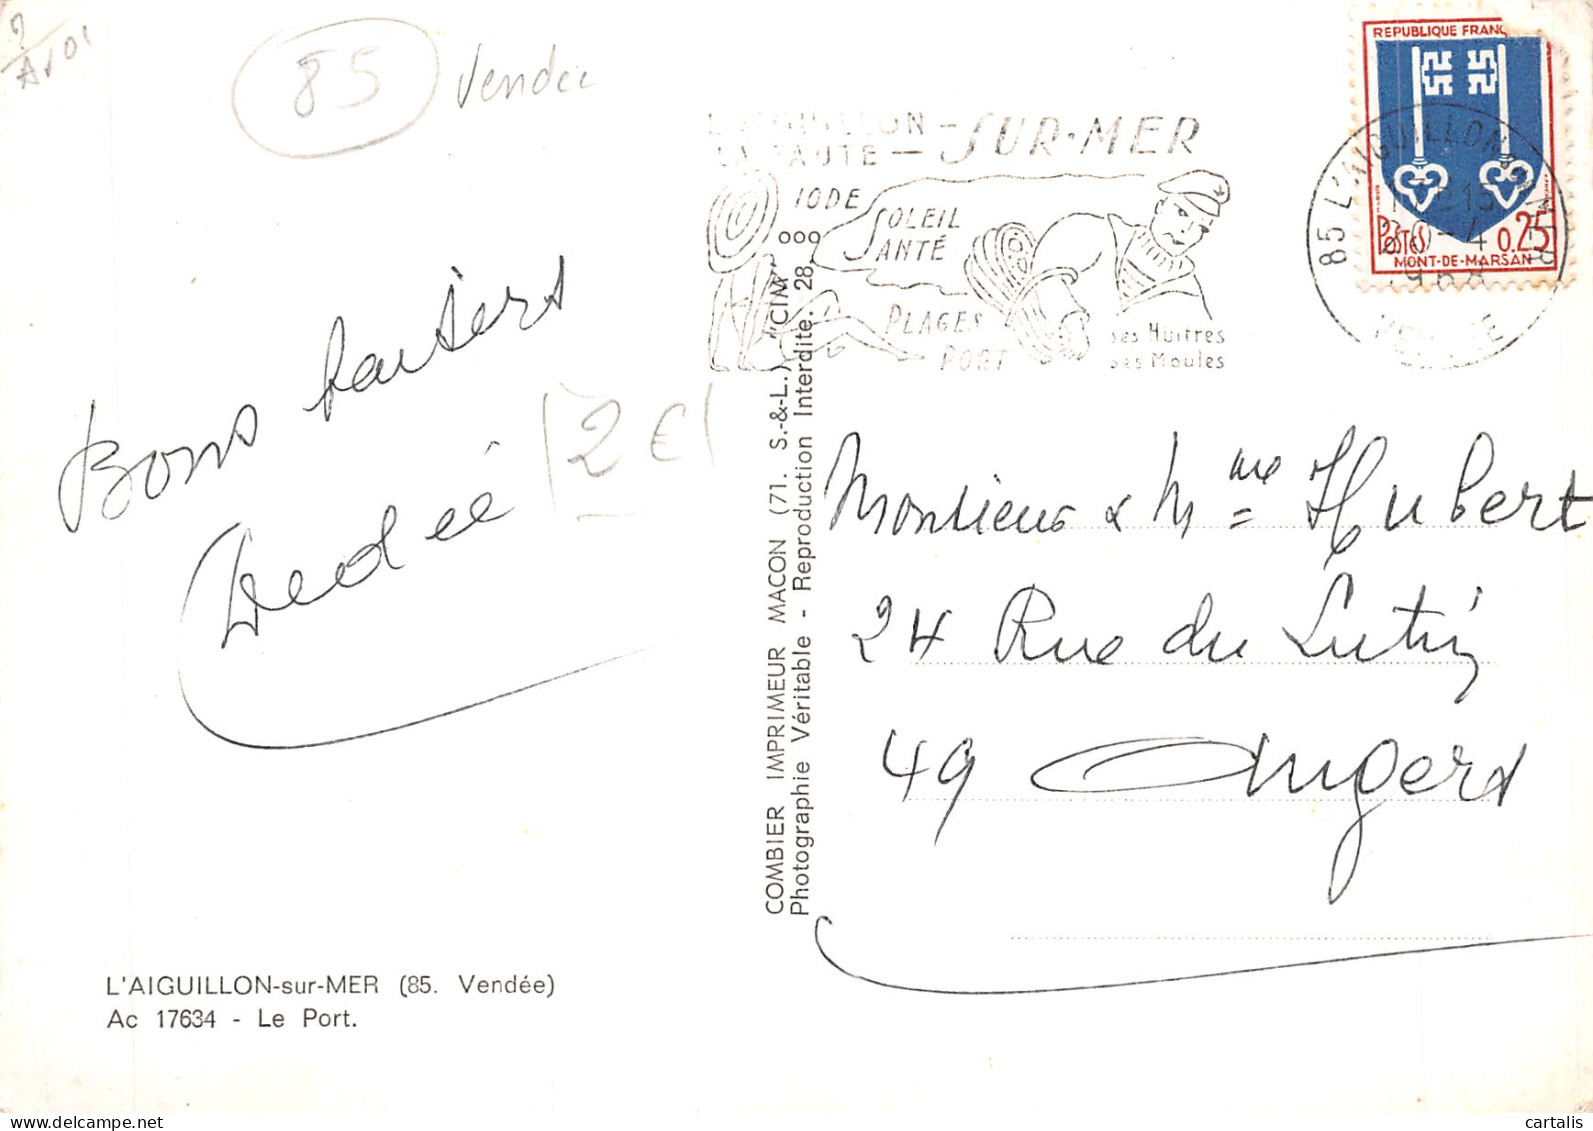 85 Vendée
L'AIGUILLON - SUR-MER
LA FAUTE -
IODE
SOLEIL
SANTÉ
PLAGES
PORT
ses Huîtres
ses Moules
REPUBLIQUE FRANÇ
POSTES 0,25
MONT-DE-MARSAN
85 L'AIGUILLON S MER
1968
VENDÉE
Bons baisers
Dedée
2€
COMBIER IMPRIMEUR MACON (71. S.-&-L.) "CIM"
Photographie Véritable - Reproduction Interdite. 28
Monsieur & Mme Hubert
24 Rue du Lutin
49 Angers
L'AIGUILLON-sur-MER (85. Vendée)
Ac 17634 - Le Port.
cartalis
cartorum